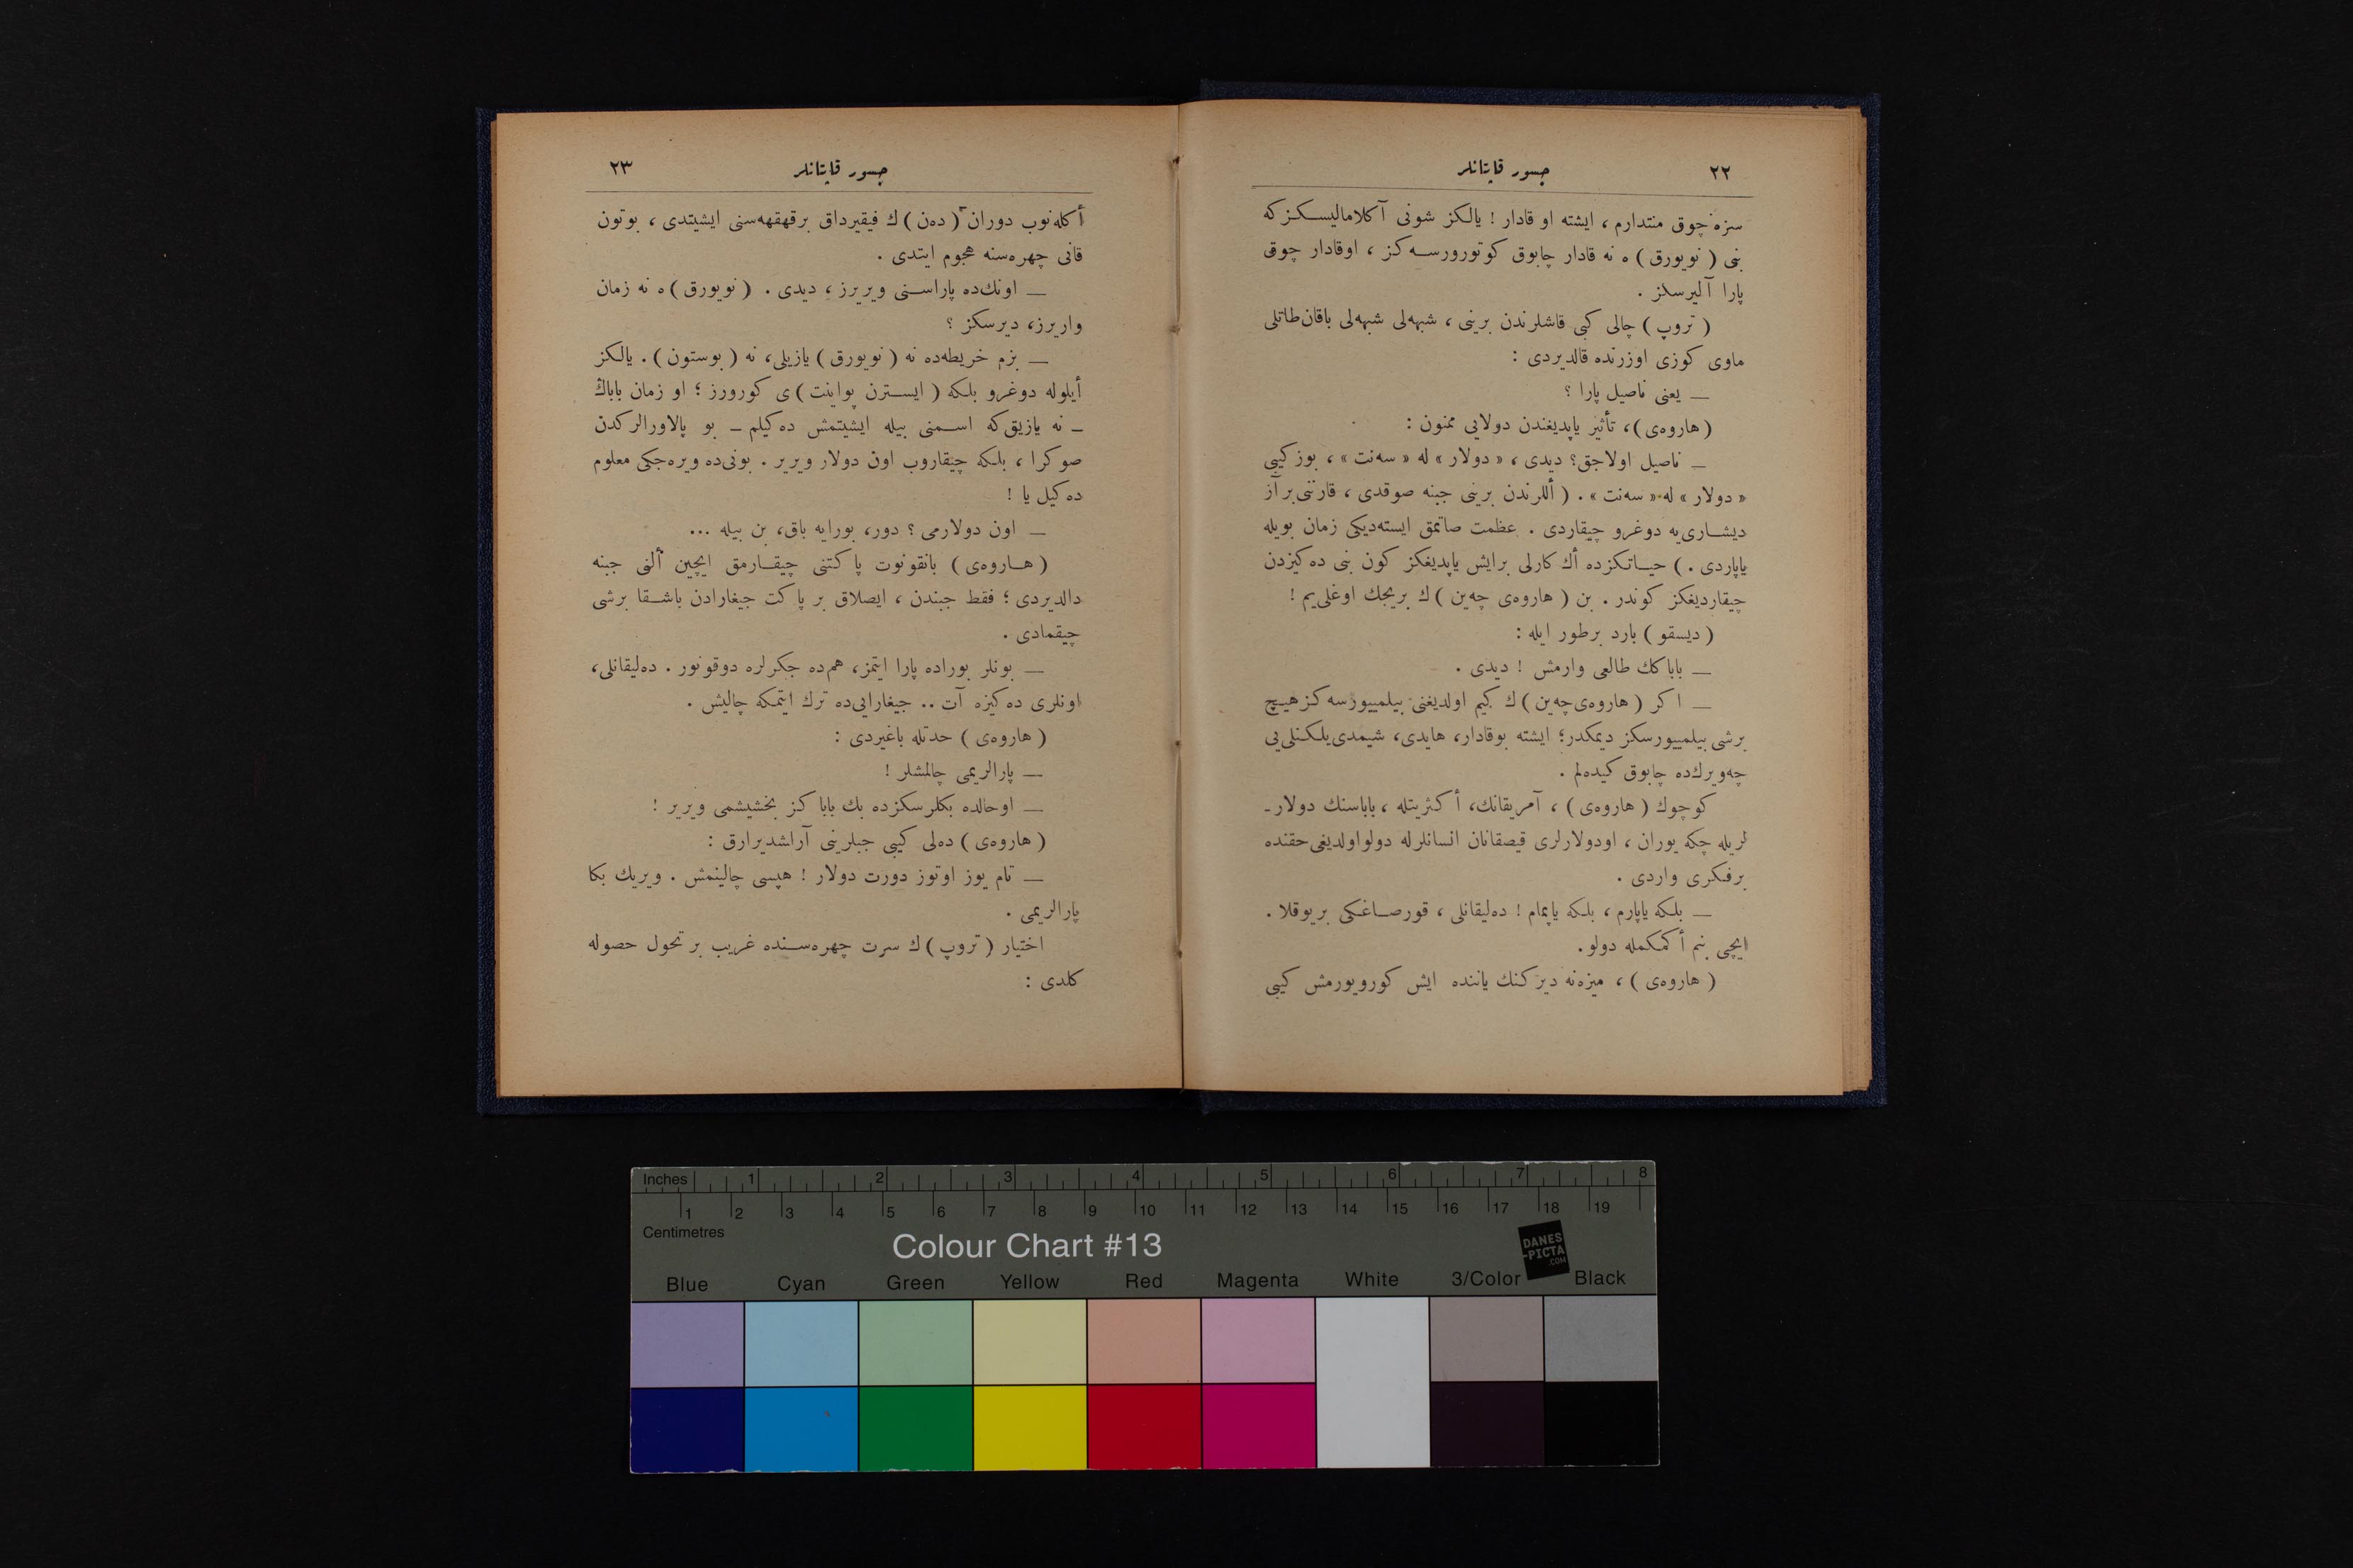 ٢٢
جسور قاپتانلر
سزه چوق منتدارم ، ایشته او قادار ! یالكز شونی آكلامالیسكزكه
بنی ( نویورق ) ه نه قادار چابوق كوتورورسه‌كز ، اوقادار چوق
پارا آلیرسكز .
( تروپ ) چالی كبی قاشلرندن برینی ، شبهه‌لی شبهه‌لی باقان طاتلی
ماوی كوزی اوزرنده قالدیردی :
— یعنی ناصیل پارا ؟
( هاروه‌ی )، تأثیر یاپدیغندن دولایی ممنون :
— ناصیل اولاجق؟ دیدی ، « دولار » له « سه‌نت » ، بوز كیبی
« دولار » له « سه‌نت » . ( أللرندن برینی جبنه صوقدی ، قارننی بر آز
دیشاری‌یه دوغرو چیقاردی . عظمت صاتمق ایسته‌دیكی زمان بویله
یاپاردی . ) حیاتكزده أك كارلی برایش یاپدیغكز كون بنی ده‌كیزدن
چیقاردیغكز كوندر . بن ( هاروه‌ی چه‌ین ) ك بریجك اوغلی‌یم !
( دیسقو ) بارد برطور ایله :
— باباكك طالعی وارمش ! دیدی .
— اكر ( هاروه‌ی چه‌ین ) ك كیم اولدیغنی بیلمییورسه‌كز هیچ
برشی بیلمییورسكز دیمكدر؛ ایشته بوقادار، هایدی، شیمدی یلكنلی‌یی
چه‌ویرك‌ده چابوق كیده‌لم .
كوچوك ( هاروه‌ی ) ، آمریقانك، أكثریتله ، باباسنك دولار-
لریله چكه یوران ، اودولارلری قیصقانان انسانلرله دولو اولدیغی حقنده
برفكری واردی .
— بلكه یاپارم ، بلكه یاپمام ! ده‌لیقانلی ، قورصاغكی بر یوقلا .
ایچی بنم أكمكمله دولو.
( هاروه‌ی ) ، میزه‌نه دیركنك یاننده ایش كورویورمش كیبی
٢٣
جسور قاپتانلر
أكله‌نوب دوران ( ده‌ن ) ك فیقیرداق برقهقهه‌سنی ایشیتدی ، بوتون
قانی چهره‌سنه هجوم ایتدی .
— اونك‌ده پاراسنی ویریرز ، دیدی . ( نویورق ) ه نه زمان
واریرز، دیرسكز ؟
— بزم خریطه‌ده نه ( نویورق ) یازیلی، نه ( بوستون ) . یالكز
أیلوله دوغرو بلكه ( ایسترن پواینت ) ی كورورز ؛ او زمان باباك
— نه یازیق‌كه اسمنی بیله ایشیتمش ده‌كیلم — بو پالاورالركدن
صوكرا ، بلكه چیقاروب اون دولار ویریر . بونی‌ده ویره‌جكی معلوم
ده‌كیل یا !
— اون دولارمی ؟ دور، بورایه باق، بن بیله ...
( هاروه‌ی ) بانقونوت پاكتنی چیقارمق ایچین ألنی جبنه
دالدیردی ؛ فقط جبندن ، ایصلاق بر پاكت جیغارادن باشقا برشی
چیقمادی .
— بونلر بوراده پارا ایتمز، هم‌ده جكرلره دوقونور . ده‌لیقانلی،
اونلری ده‌كیزه آت .. جیغارایی‌ده ترك ایتمكه چالیش .
( هاروه‌ی ) حدتله باغیردی :
— پارالریمی چالمشلر !
— اوحالده بكلرسكزده بك باباكز بخشیشمی ویریر !
( هاروه‌ی ) ده‌لی كیبی جبلرینی آراشدیرارق :
— تام یوز اوتوز دورت دولار ! هپسی چالینمش . ویریك بكا
پارالریمی .
اختیار ( تروپ ) ك سرت چهره‌سنده غریب بر تحول حصوله
كلدی :
Inches 1 2 3 4 5 6 7 8
1 2 3 4 5 6 7 8 9 10 11 12 13 14 15 16 17 18 19
Centimetres
Colour Chart #13
DANES
-PICTA
.COM
Blue Cyan Green Yellow Red Magenta White 3/Color Black